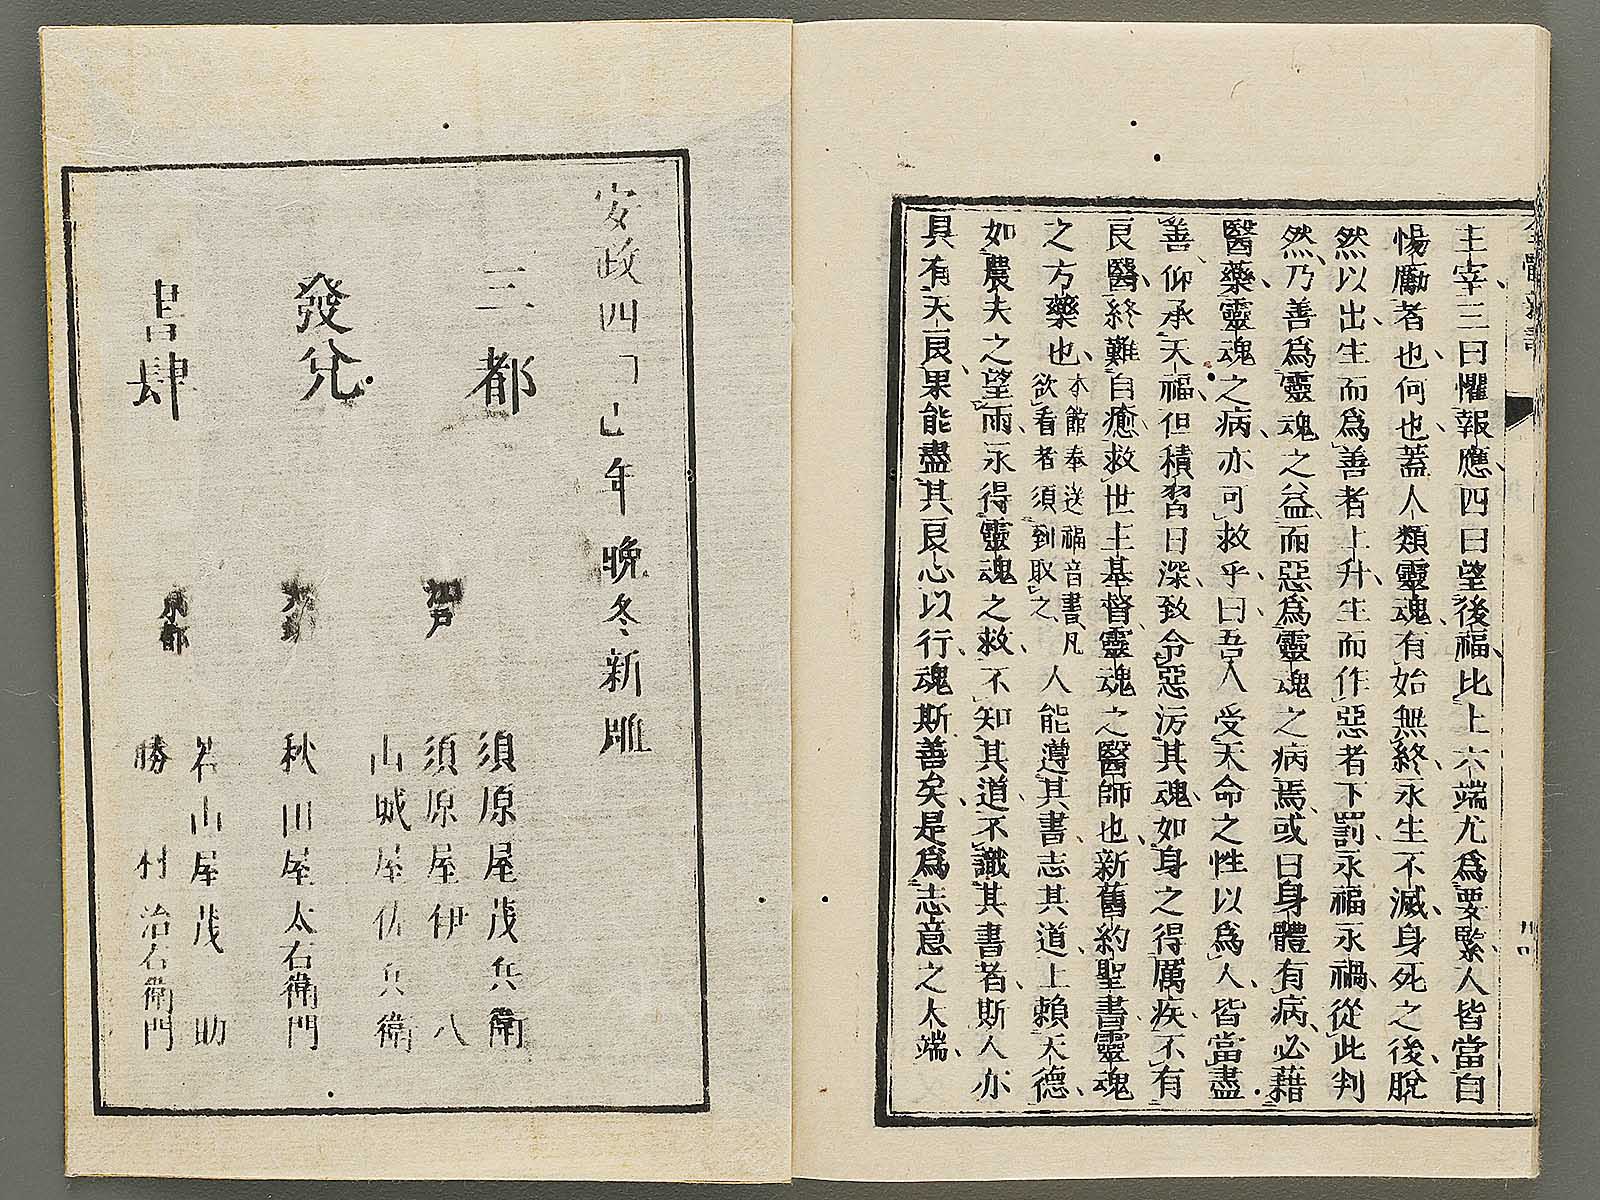 主宰三曰懼報應四曰望後福比上六端尤爲要緊人皆當自
惕勵者也何也蓋人類靈魂有始無終永生不滅身死之後脫
然以出生而爲善者上升生而作惡者下罰永福永禍從此判
然乃善爲靈魂之益而惡爲靈魂之病焉或曰身體有病必藉
醫藥靈魂之病亦可救乎曰吾人受天命之性以爲人皆當盡
善仰承天福但積習日深致令惡污其魂如身之得厲疾不有
良醫終難自癒救世主基督靈魂之醫師也新舊約聖書靈魂
之方藥也本館奉送福音書凡欲看者須到取之人能遵其書志其道上賴天德
如農夫之望雨永得靈魂之救不知其道不識其書者斯人亦
具有天良果能盡其良心以行魂斯善矣是爲志意之大端
安政四丁巳年晩冬新雕
三都
發兌
書肆
江戸
須原屋茂兵衛
須原屋伊八
山城屋佐兵衛
大坂
秋田屋太右衛門
京都
若山屋茂助
勝村治右衛門